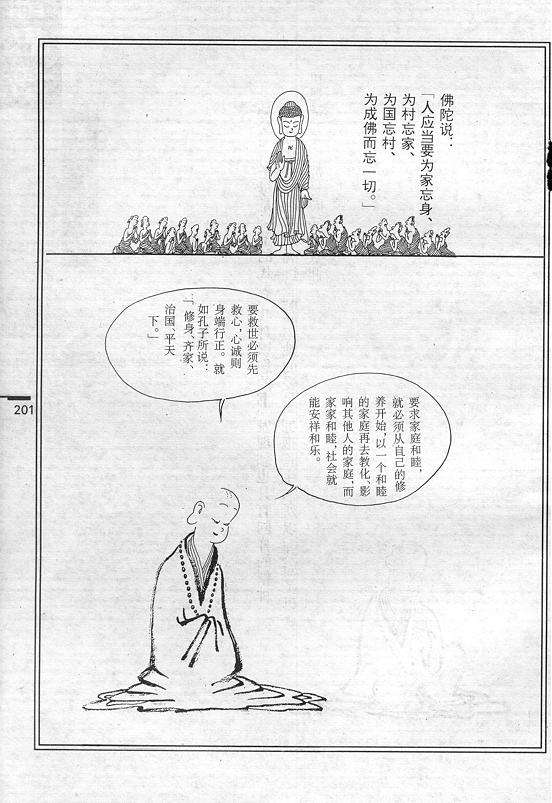 佛陀说：
「人应当要为家忘身、
为村忘家、
为国忘村、
为成佛而忘一切。」
要救世必须先
救心，心诚则
身端行正。就
如孔子所说：
「修身、齐家、
治国、平天
下。」
要求家庭和睦，
就必须从自己的修
养开始，以一个和睦
的家庭再去教化、影
响其他人的家庭，而
家家和睦，社会就
能安祥和乐。
201